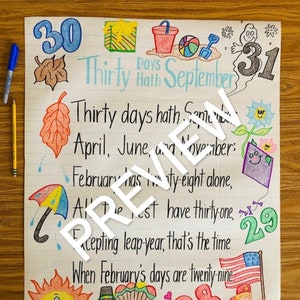 30
31
Thirty Days Hath September
Thirty days hath September,
April, June, and November;
February has twenty-eight alone,
All the rest have thirty-one,
Excepting leap-year, that's the time
When February's days are twenty-nine.
29
PREVIEW